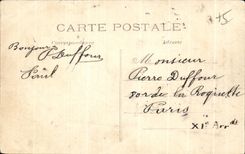 CARTE POSTALE
+5
Correspondance
Bonjour
Duffour
Paul
Monsieur
Pierre Duffour
rue de la Roquette
Paris
XIe Arrdt